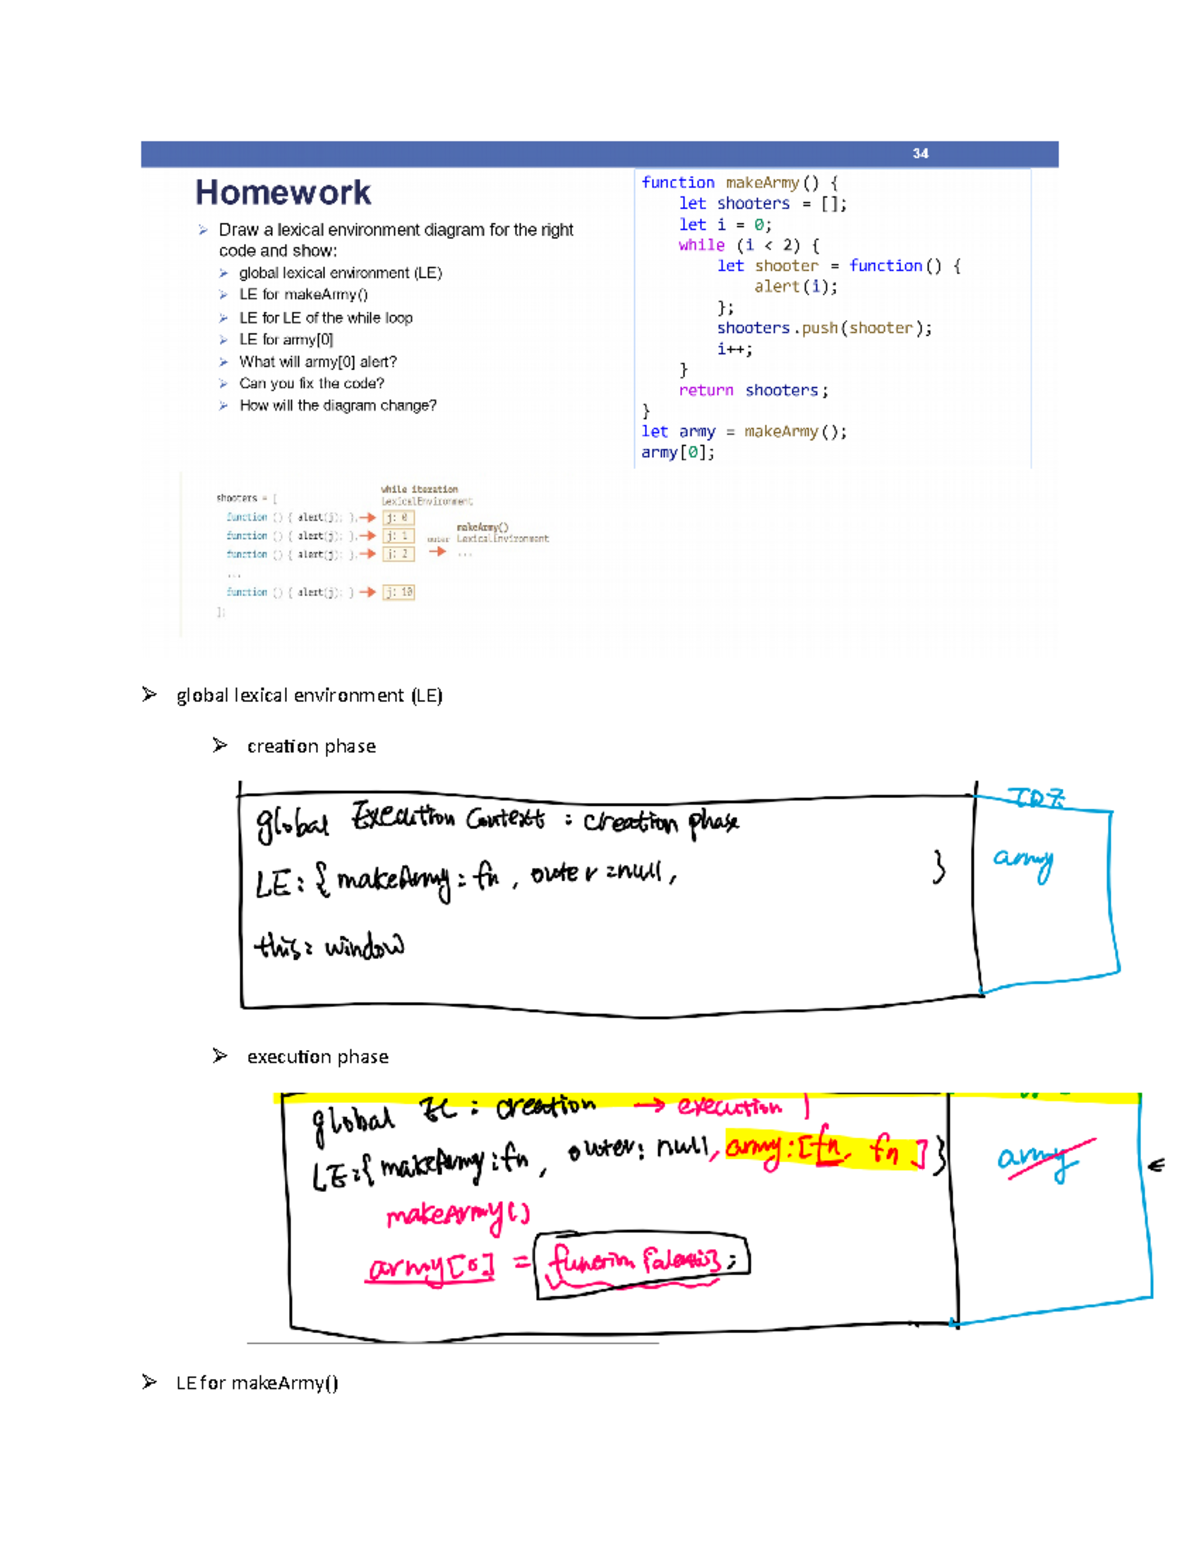 34
Homework
Draw a lexical environment diagram for the right
code and show:
global lexical environment (LE)
LE for makeArmy()
LE for LE of the while loop
LE for army[0]
What will army[0] alert?
Can you fix the code?
How will the diagram change?
function makeArmy() {
let shooters = [];
let i = 0;
while (i < 2) {
let shooter = function() {
alert(i);
};
shooters.push(shooter);
i++;
}
return shooters;
}
let army = makeArmy();
army[0];
while iteration
LexicalEnvironment
shooters = [
function () { alert(j); }, j: 0
function () { alert(j); }, j: 1
function () { alert(j); }, j: 2
makeArmy()
outer LexicalEnvironment
...
...
function () { alert(j); } j: 10
];
global lexical environment (LE)
creation phase
TDZ
global Execution Context : creation phase
LE: { makeArmy: fn, outer = null, }
army
this: window
execution phase
global EC : creation → execution
LE: { makeArmy: fn, outer: null, army: [fn, fn] }
army
makeArmy()
army[0] = function {alert(i)};
LE for makeArmy()